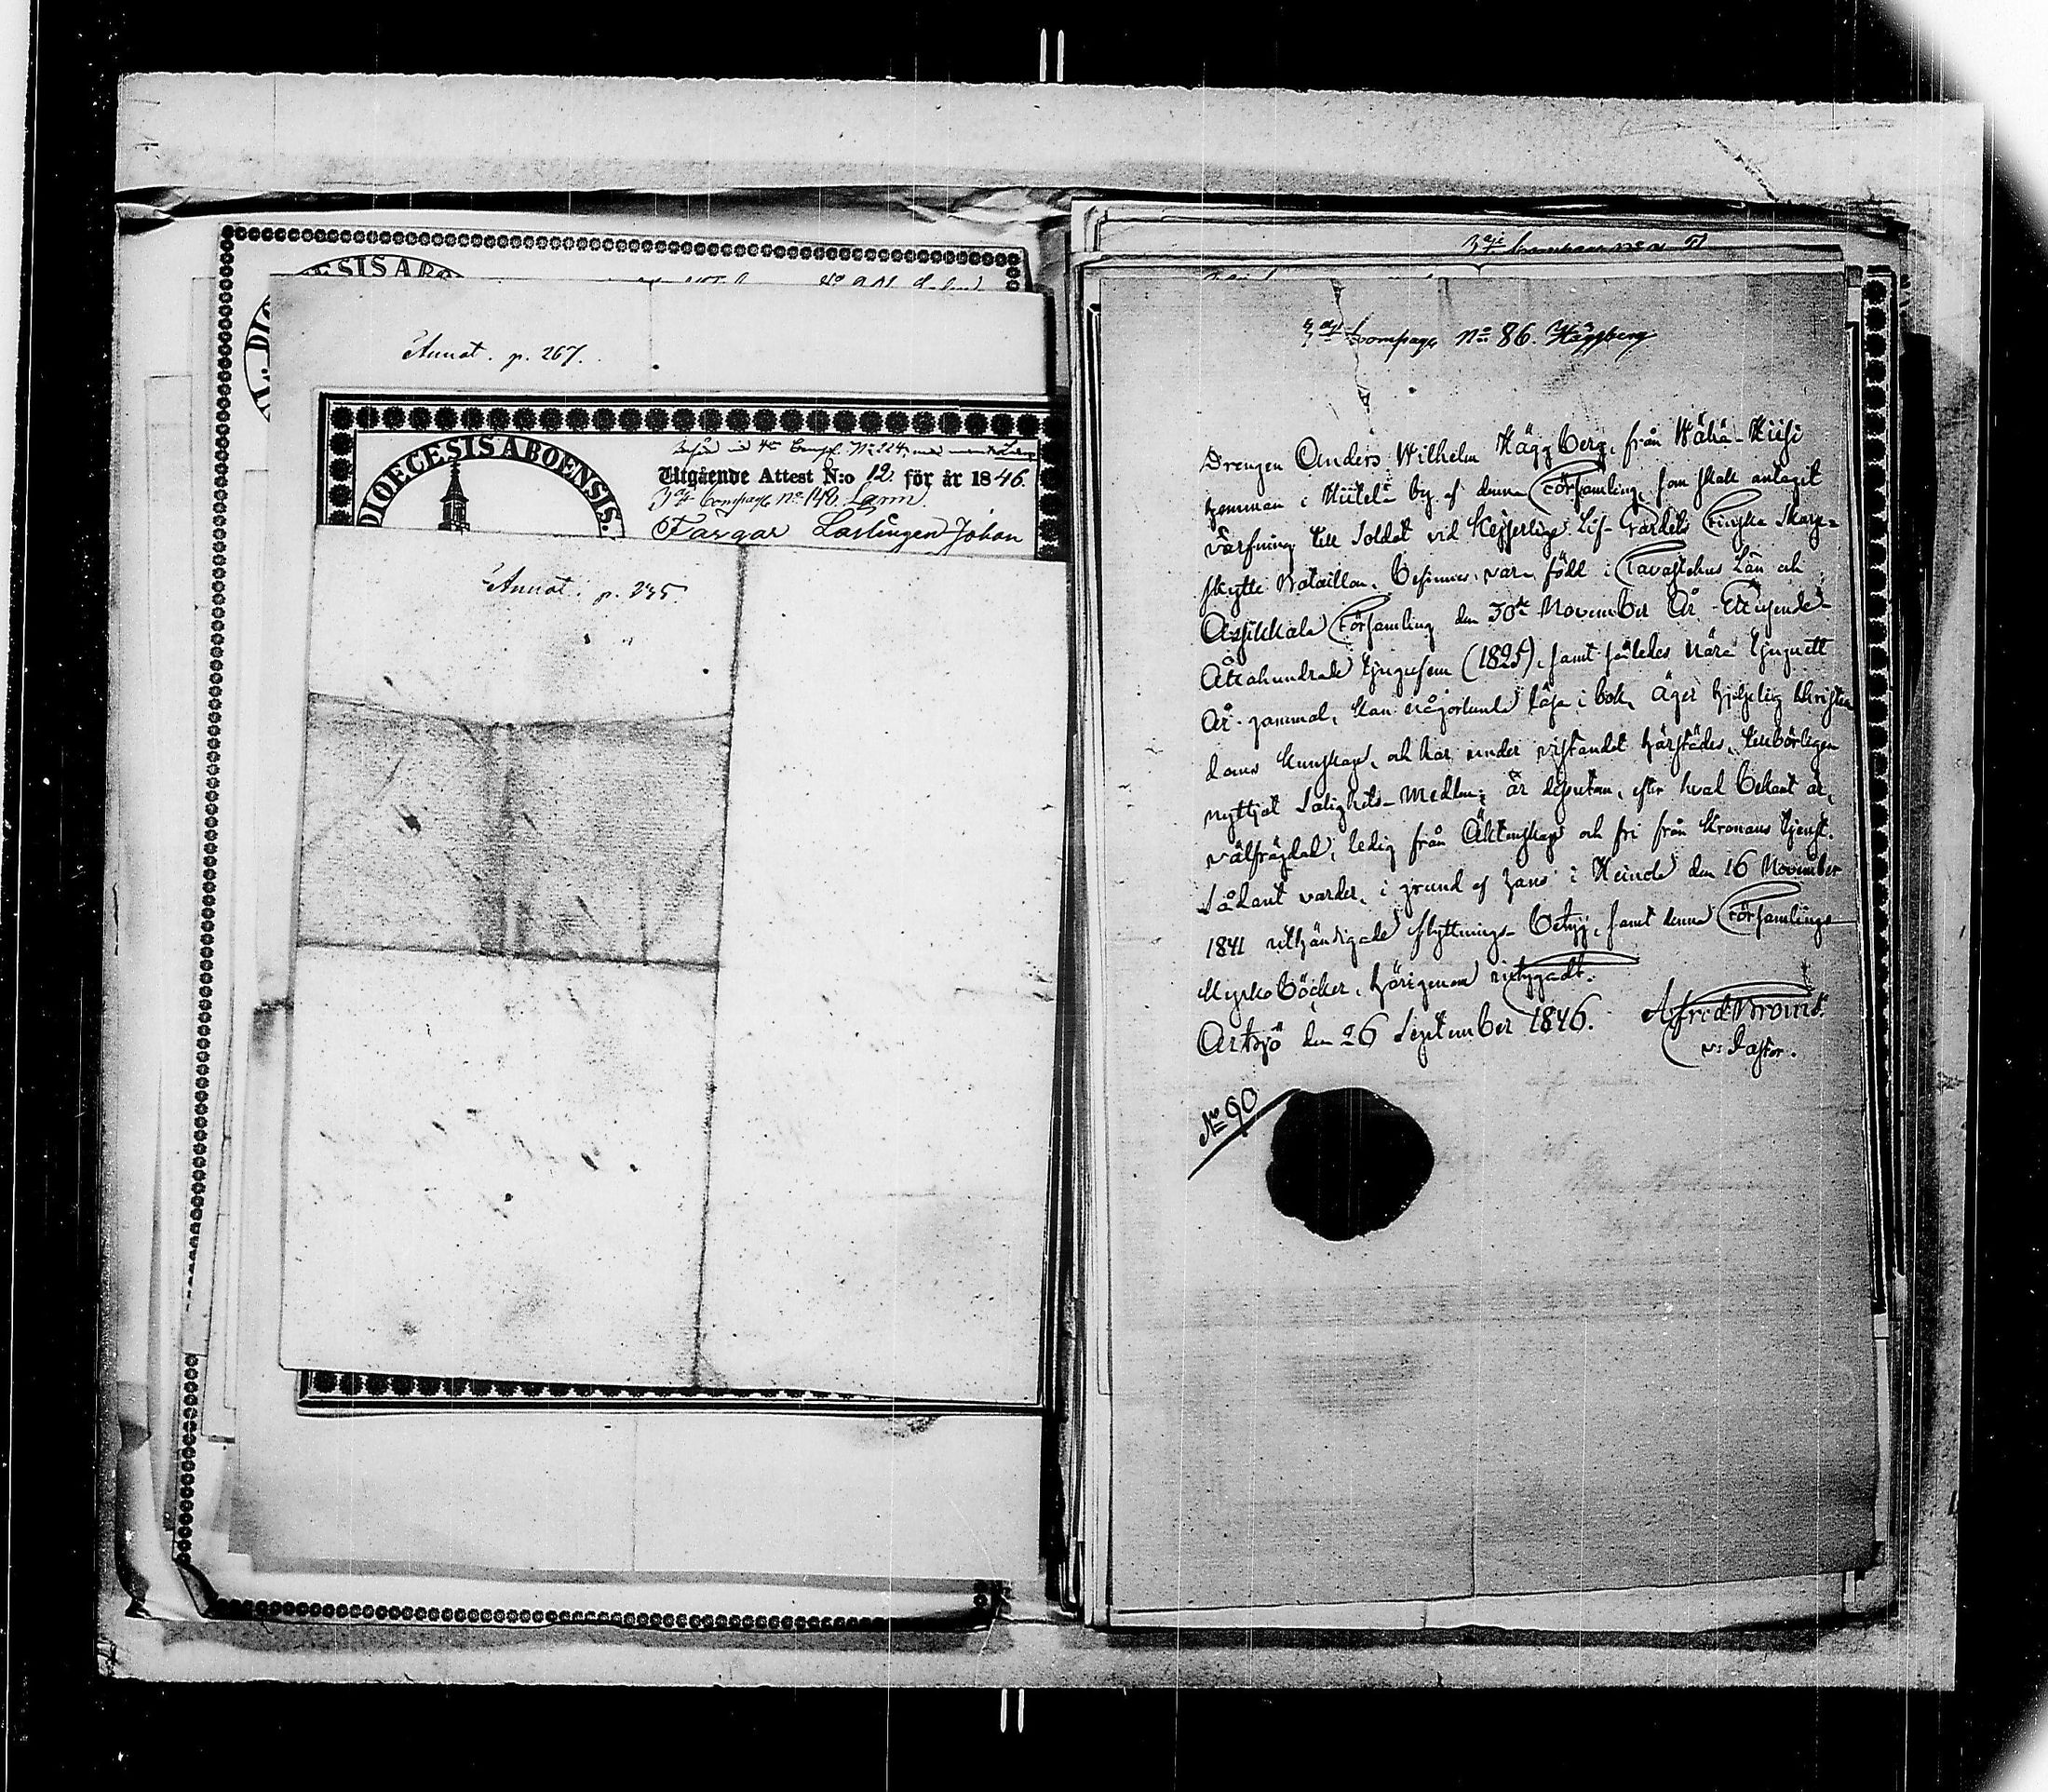 DIOECESIS ABO
Annot. p. 267.
DIOECESIS ABOENSIS.
Utgående Attest N:o 12. för år 1846.
3dje Compagn. No 148. Larm.
Färgar Lärlingen Johan
Annot. p. 235.
Compagn No 86. Häggberg
Drengen Anders Wilhelm Häggberg, från Wähä-Hiisi
hemman i Hiitelä by af denna Församling, som skall antagit
värfning till Soldat vid Kejserliga Lif-Gardets Finska Skarp-
skytte Bataillon, befinnes vara född i Tavastehus Län och
Asikkala Församling den 30de November År Ettusende
Åttahundrade tjugufem (1825), samt således nära tjuguett
År gammal, kan någorlunda läsa i bok, äger hjelpelig Christen
doms kunskap, och har under vistandet härstädes, tillbörligen
nyttjat Salighets-Medlen; är dessutom, efter hvad bekant är,
välfrägdad, ledig från Äktenskap och fri från Kronans tjenst.
Sådant varder, i grund af hans i Heinola den 16 November
1841 uthändigade flyttnings-betyg, samt denna Församlings
Kyrkoböcker, härigenom vidtygadt.
Artsjö den 26 September 1846. Alfred Brovis
v: Pastor.
No 90